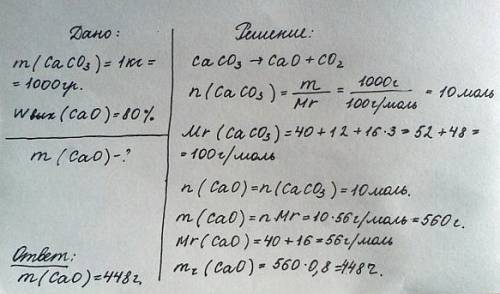 Дано:
m(CaCO₃)=1кг=
=1000гр.
Wвых(CaO)=80%
m(CaO)-?
Ответ:
m(CaO)=448г,
Решение:
CaCO₃→CaO+CO₂
n(CaCO₃)=m/Mr=1000г/100г/моль=10моль
Mr(CaCO₃)=40+12+16·3=52+48=
=100г/моль
n(CaO)=n(CaCO₃)=10моль.
m(CaO)=nMr=10·56г/моль=560г.
Mr(CaO)=40+16=56г/моль
m₂(CaO)=560·0,8=448г.